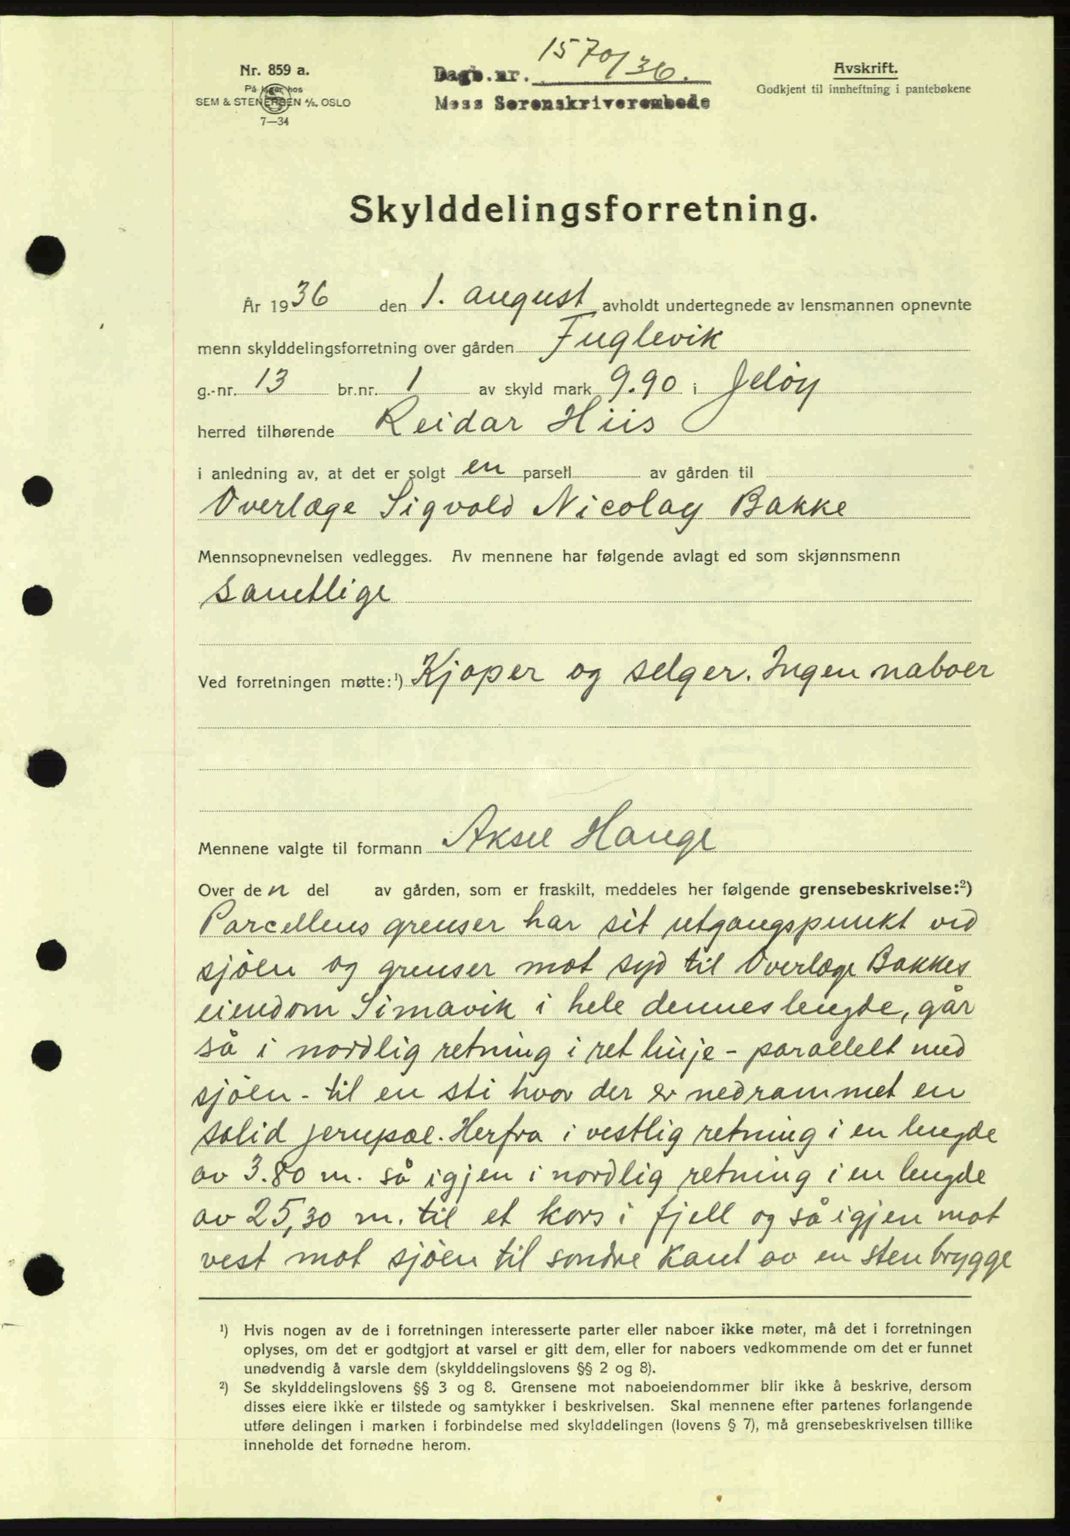 Nr. 859 a.
På lager hos
SEM & STENERSEN A/S, OSLO
7—34
Dagb.nr. 1570/36.
Moss Sorenskriverembede
Avskrift.
Godkjent til innheftning i pantebøkene
Skylddelingsforretning.
År 1936 den 1. august avholdt undertegnede av lensmannen opnevnte
menn skylddelingsforretning over gården Fuglevik
g.-nr. 13 br.nr. 1 av skyld mark 9.90 i Jeløy
herred tilhørende Reidar Hiis
i anledning av, at det er solgt en parsell av gården til
Overlæge Sigvald Nicolay Bakke
Mennsopnevnelsen vedlegges. Av mennene har følgende avlagt ed som skjønnsmenn
samtlige
Ved forretningen møtte:¹) Kjøper og selger. Ingen naboer
Mennene valgte til formann Aksel Hauge
Over den del av gården, som er fraskilt, meddeles her følgende grensebeskrivelse:²)
Parcellens grenser har sit utgangspunkt ved
sjöen og grenser mot syd til Overlæge Bakkes
eiendom Simavik i hele dennes lengde, går
så i nordlig retning i ret linje - parallelt med
sjöen - til en sti hvor der er nedrammet en
solid jernpæl. Herfra i vestlig retning i en lengde
av 3.80 m. så igjen i nordlig retning i en lengde
av 25,30 m. til et kors i fjell og så igjen mot
vest mot sjöen til søndre kant av en sten brygge
¹) Hvis nogen av de i forretningen interesserte parter eller naboer ikke møter, må det i forretningen
oplyses, om det er godtgjort at varsel er gitt dem, eller for naboers vedkommende om det er funnet
unødvendig å varsle dem (skylddelingslovens §§ 2 og 8).
²) Se skylddelingslovens §§ 3 og 8. Grensene mot naboeiendommer blir ikke å beskrive, dersom
disses eiere ikke er tilstede og samtykker i beskrivelsen. Skal mennene efter partenes forlangende
utføre delingen i marken i forbindelse med skylddelingen (lovens § 7), må grensebeskrivelsen tillike
inneholde det fornødne herom.